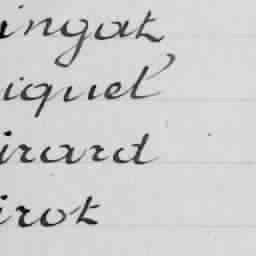 ingat
iquel
irard
irot